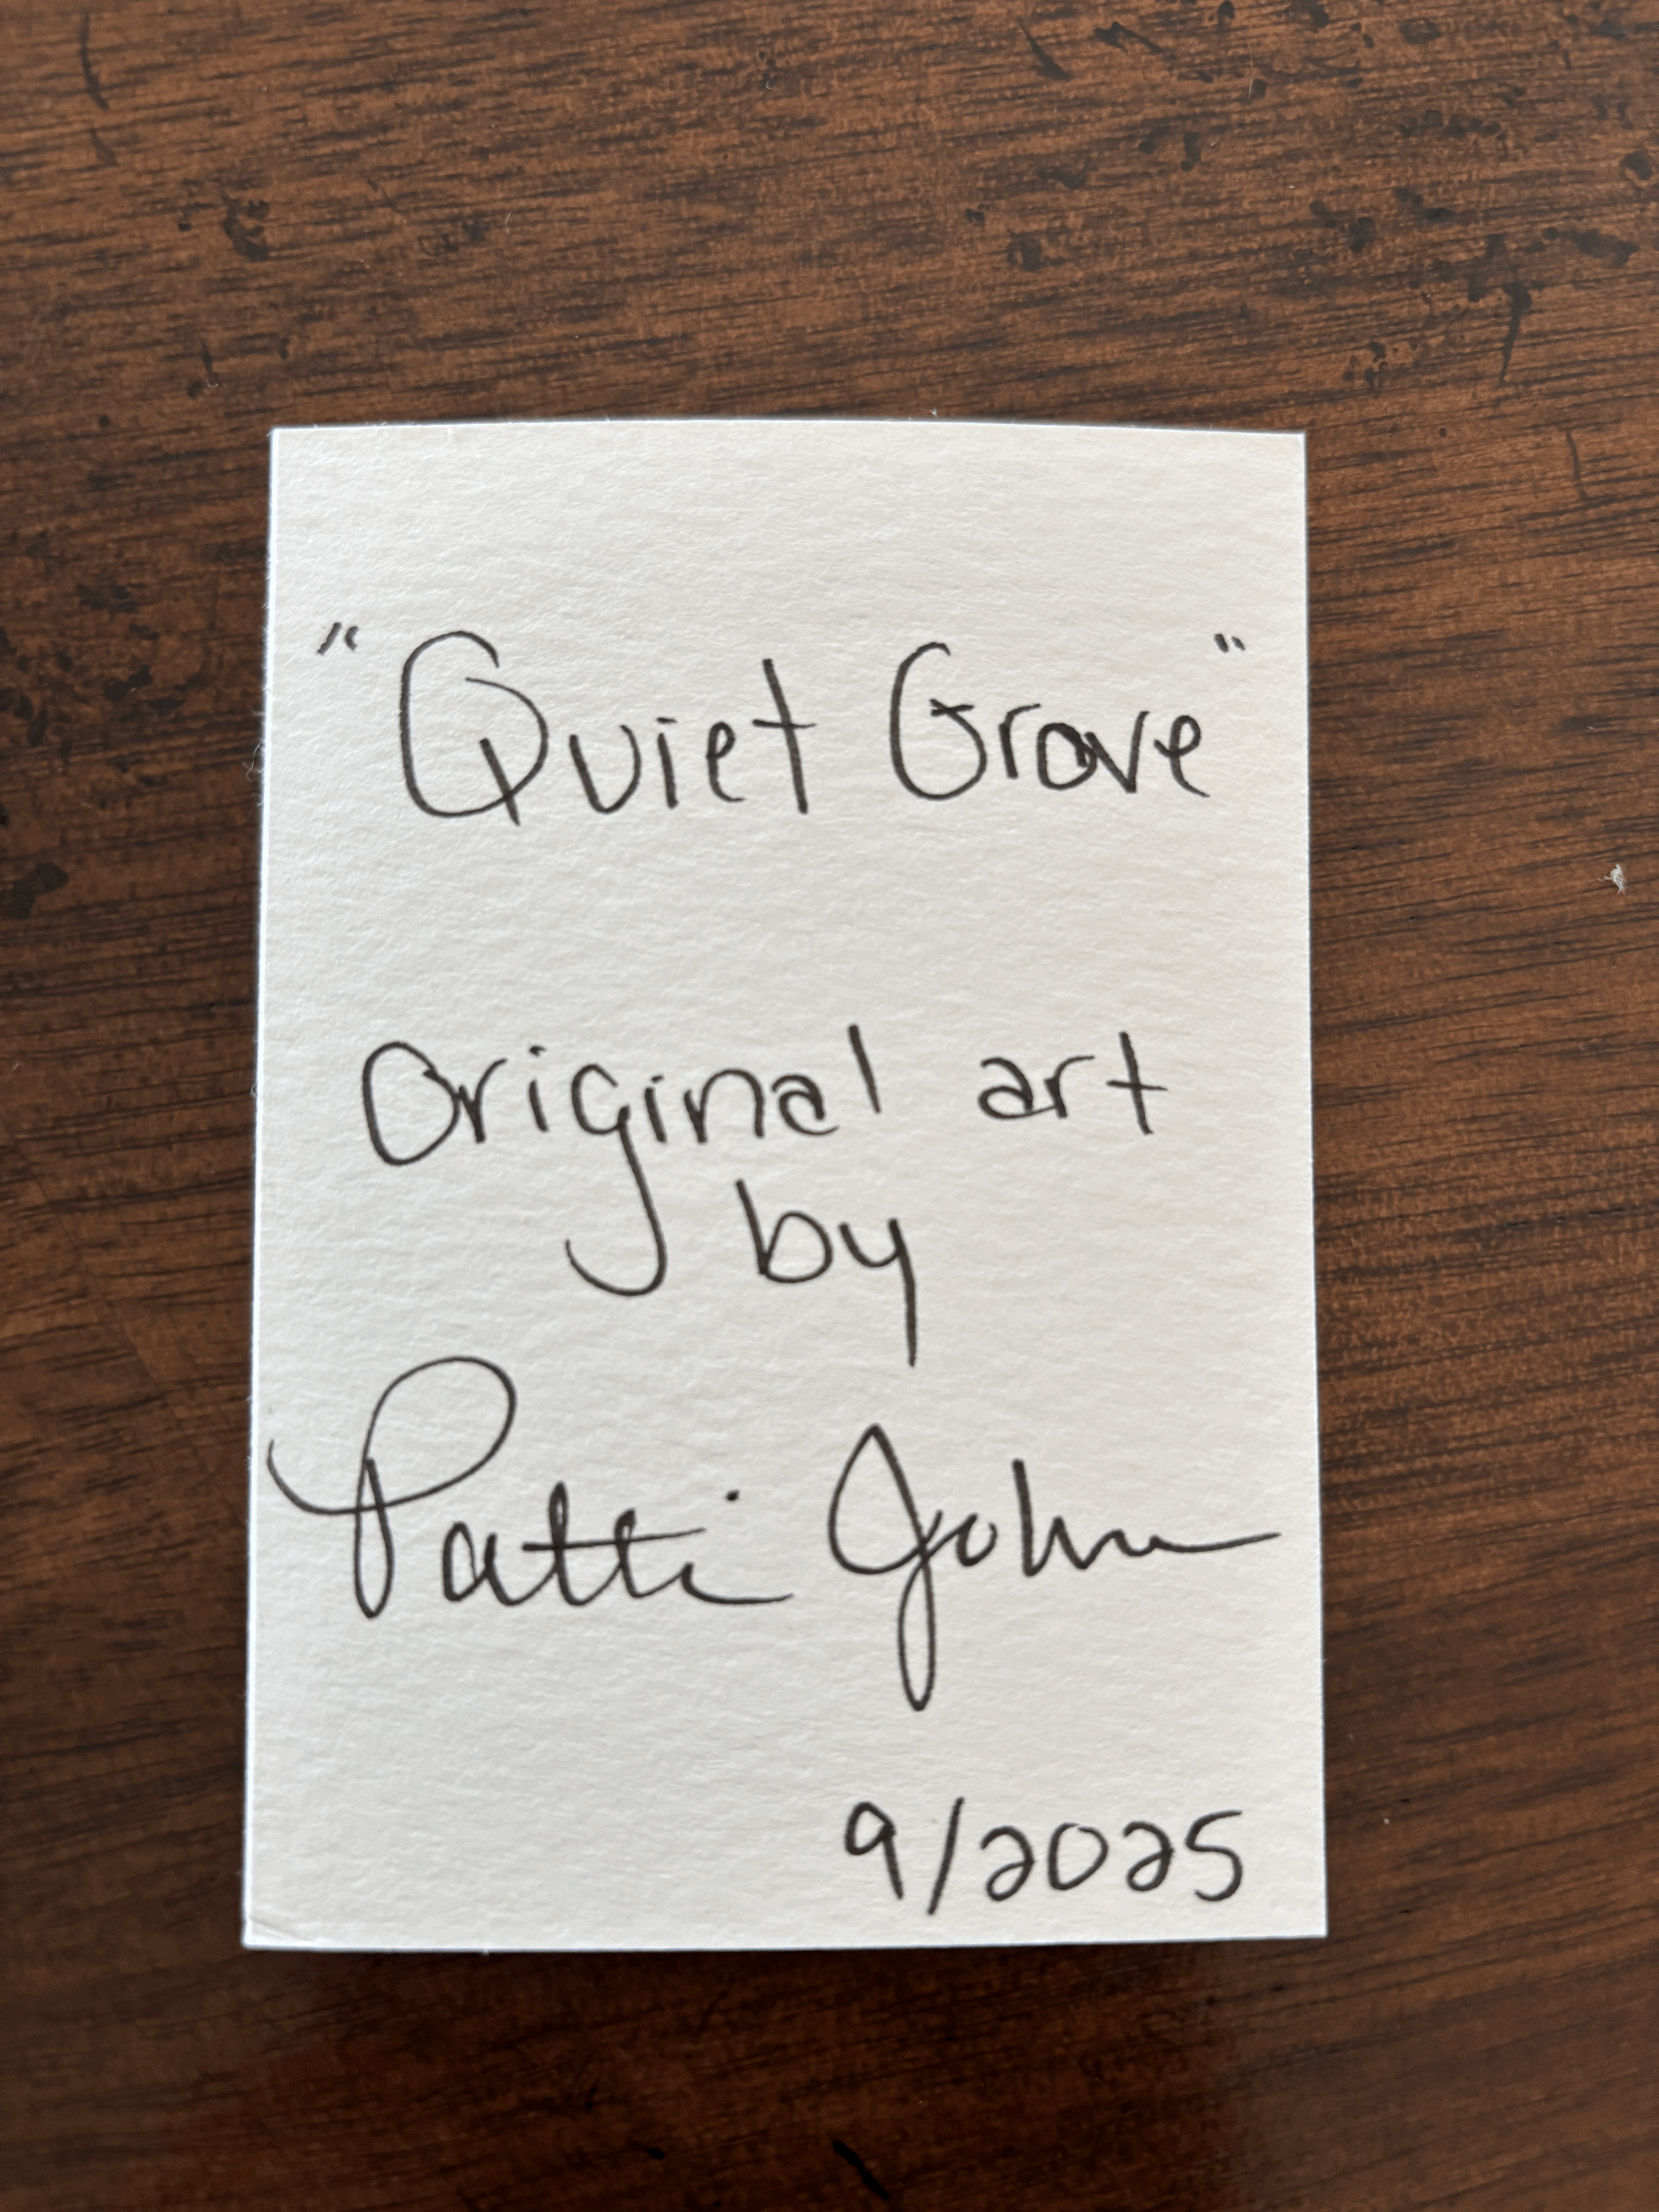 "Quiet Grove"
Original art
by
Patti John
9/2025